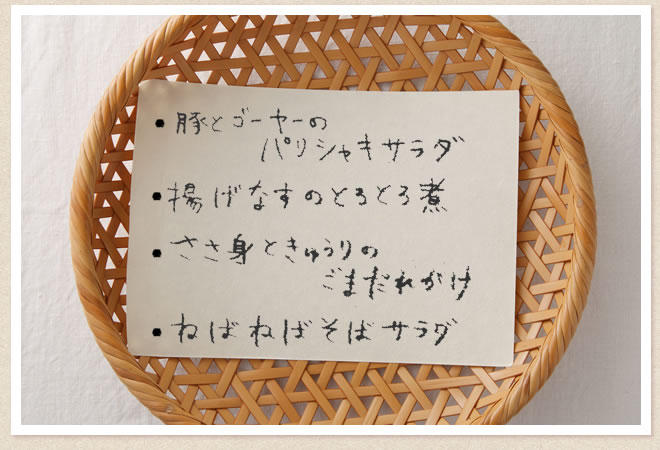 • 豚とゴーヤーの
パリシャキサラダ
• 揚げなすのとろとろ煮
• ささ身ときゅうりの
ごまだれがけ
• ねばねばそばサラダ